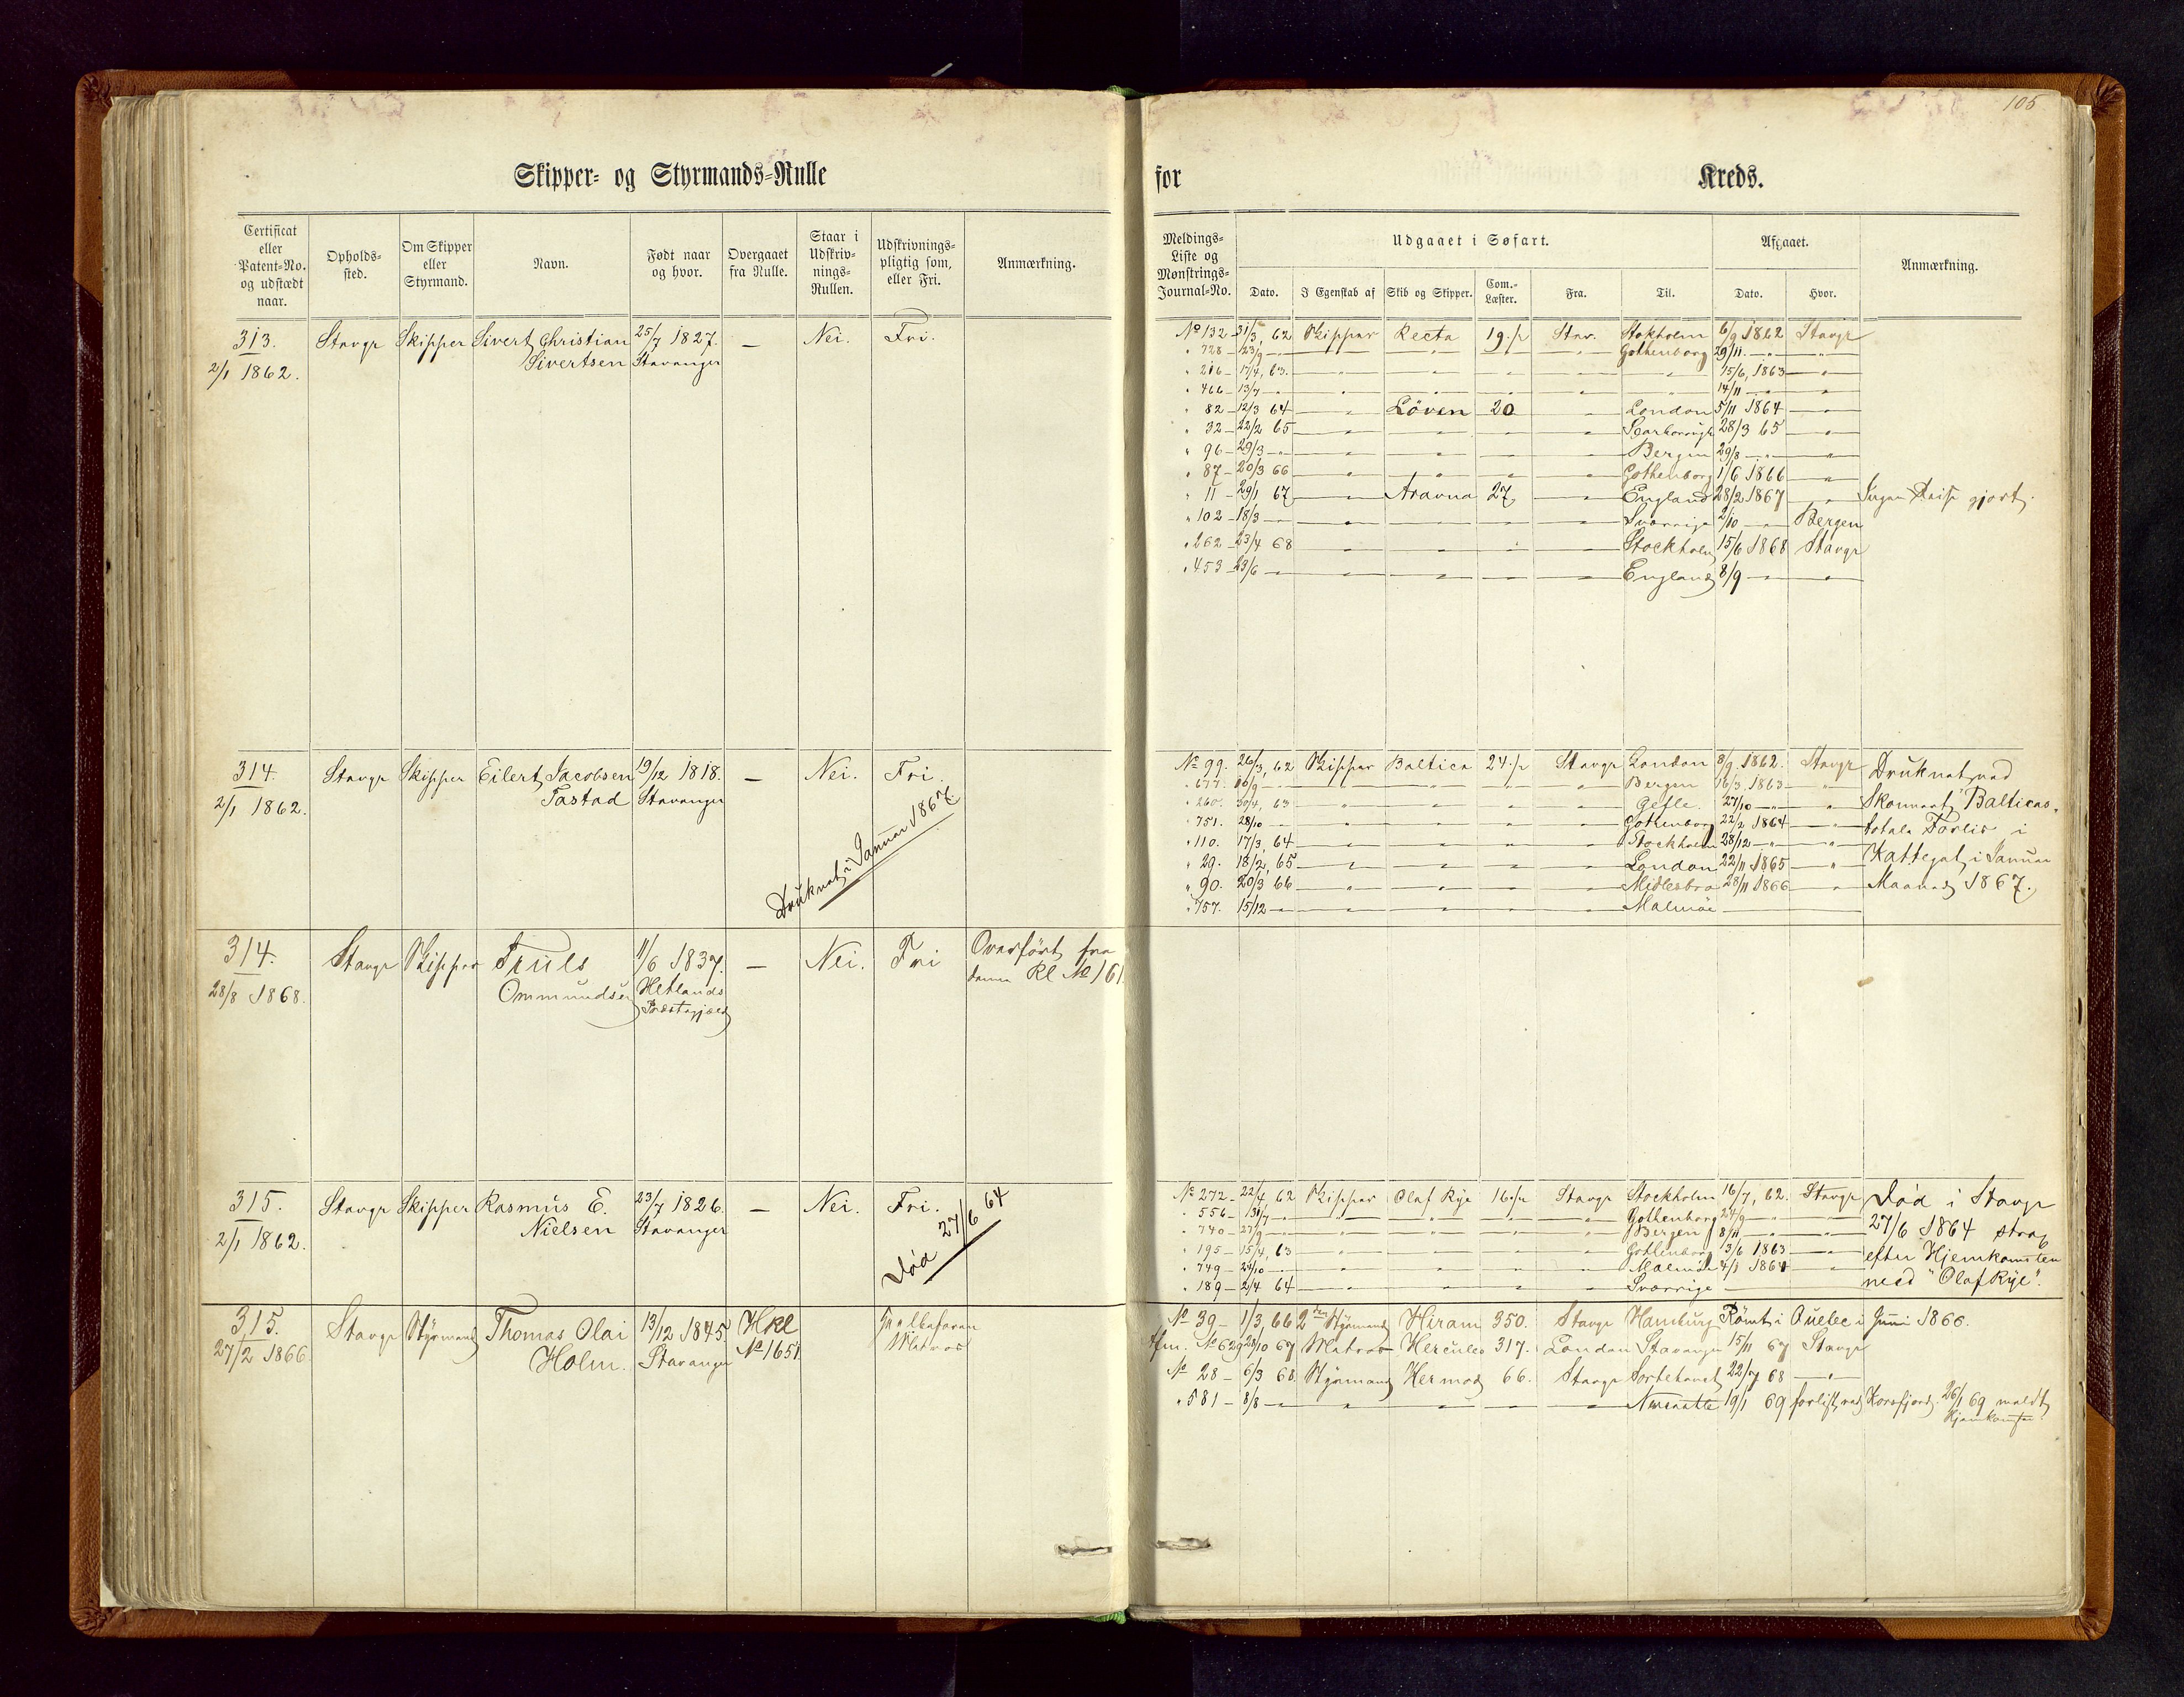 105
Skipper- og Styrmands-Rulle
for Kreds.
Certificat eller Patent-No. og udstædt naar.
Opholds-sted.
Om Skipper eller Styrmand.
Navn.
Født naar og hvor.
Overgaaet fra Rulle.
Staar i Udskriv-nings-Rullen.
Udskrivnings-pligtig som, eller Fri.
Anmærkning.
Meldings-Liste og Mønstrings-Journal-No.
Udgaaet i Søfart.
Dato.
I Egenskab af
Skib og Skipper.
Com.-Læster.
Fra.
Til.
Afgaaet.
Dato.
Hvor.
Anmærkning.
313. Stavgr Skipper Sivert Christian 25/7 1827. — Nei. Fri.
2/1 1862. Sivertsen Stavanger
No 132 31/3, 62 Skipper Recta 19 Stav. Stokholm 6/9 1862 Stavgr
" 728 — 23/9 — " — " — " — Gothenborg 29/11 — " — "
" 216 — 17/4, 63. — " — " — " — 15/6, 1863 — "
" 466 — 13/7 — " — " — " — 14/11 — " — "
" 82 — 12/3 64 — " — Löven 20 " London 5/11 1864 — "
" 32 — 22/2 65 — " — " — " — Scarborough 28/3 65 — "
" 96 — 29/3 — " — " — " — Bergen 29/8 — " — "
" 87 — 20/3 66 — " — " — " — Gothenborg 1/6 1866 — "
" 11 — 29/1 67 — " — 27 — " — England 28/2 1867 — " Ingen Reise gjort.
" 102 — 18/3 — " — " — " — Sverrige 2/10 — " — Bergen
" 262 — 23/4 68 — " — " — " — Stockholm 15/6 1868 Stavgr
" 453 — 23/6 — " — " — " — England 8/9 — " — "
314. Stavgr Skipper Eilert Jacobsen 19/12 1818. — Nei. Fri.
2/1 1862. Tastad Stavanger
Druknet i Januar 1867.
No 99. 26/3, 62 Skipper Baltica 24 Stavgr London 8/9 1862. Stavgr Druknet ved
" 677. — " — " — " — Bergen 16/3 1863 — " Skonnert "Balticas"
" 260. 30/4, 63 " — " — " — Gefle. 27/10 — " — " totale Forlis i
" 751. 28/10 — " — " — " — Gothenborg 22/2 1864 — " Kattegat i Januar
" 110. 17/3, 64 — " — " — " — Stockholm 28/12 — " — " Maaned 1867.
" 29. 18/2, 65 — " — " — " — London 22/11 1865 — "
" 90. 20/3 66 — " — " — " — Midlesbro 28/11 1866 — "
" 757. 15/12 — " — " — " — Malmöe
314. Stavgr Skipper Truls 11/6 1837. — Nei. Fri Overført fra
28/8 1868. Ommundsen Hetlands Præstegjæld denne Rl No 161
315. Stavgr Skipper Rasmus E. 23/7 1826. — Nei. Fri.
2/1 1862. Nielsen Stavanger
Død 27/6 64
No 272 — 22/4 62 Skipper Olaf Rye 16 Stavgr Stockholm 16/7, 62. Stavgr Død i Stavgr
" 556 — 31/7 — " — " — " — Gothenborg 24/9 — " — " 27/6 1864 strax
" 740 — 27/9 — " — " — " — Bergen 8/11 — " — " efter Hjemkomsten
" 195 — 15/4, 63 — " — " — " — Gothenborg 3/6 1863 — " med "Olaf Rye".
" 749 — 24/10 — " — " — " — Malmöe 4/1 1864 — "
" 189 — 2/4 64 — " — " — " — Sverrige
315. Stavgr Styrmand Thomas Olai 13/12 1845 Hrl
27/2 1866 Holm. Stavanger No 1651 Matros
No 39 — 1/3, 66 2den Styrmand Hiram 350. Stavgr Hamburg Römt i Quebec i Juni 1866.
Afm. No 629 29/10 67 Matros Hercules 317. London Stavanger 15/11 67 Stavgr
No 28 — 6/3 68. Styrmand Hermod 66. Stavgr Sortehavet 22/7 68 — "
" 581 — 8/8 — " — " — " — 19/1 69 forlist ved Korsfjord. 26/1 69 meldt Hjemkomsten